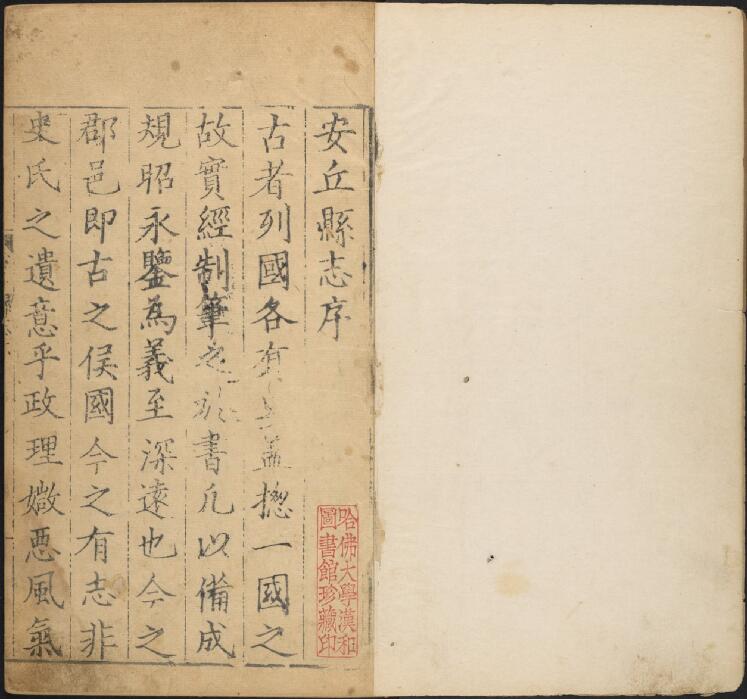 安丘縣志序
古者列國各有史蓋揔一國之
故實經制筆之於書凡以備成
規昭永鑒為義至深遠也今之
郡邑即古之侯國今之有志非
史氏之遺意乎政理媺惡風氣
哈佛大學漢和
圖書館珍藏印